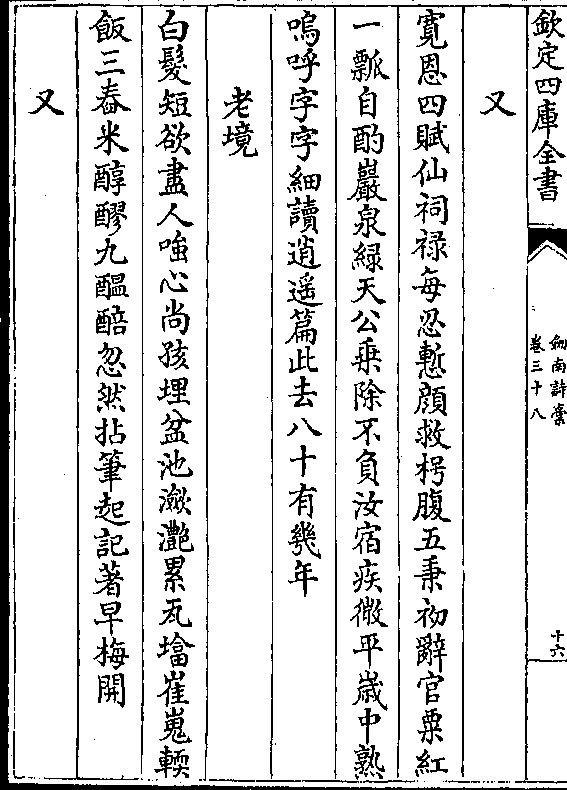 欽定四庫全書
劍南詩藁
卷三十八
十六
又
寛恩四賦仙祠禄每忍慙顔救枵腹五秉初辭官粟紅
一瓢自酌巖泉緑天公乗除不負汝宿疾微平嵗中熟
嗚呼字字細讀逍遥篇此去八十有幾年
老境
白髮短欲盡人嗤心尚孩埋盆池瀲灧累瓦墖崔嵬輭
飯三舂米醇醪九醖醅忽然拈筆起記著早梅開
又